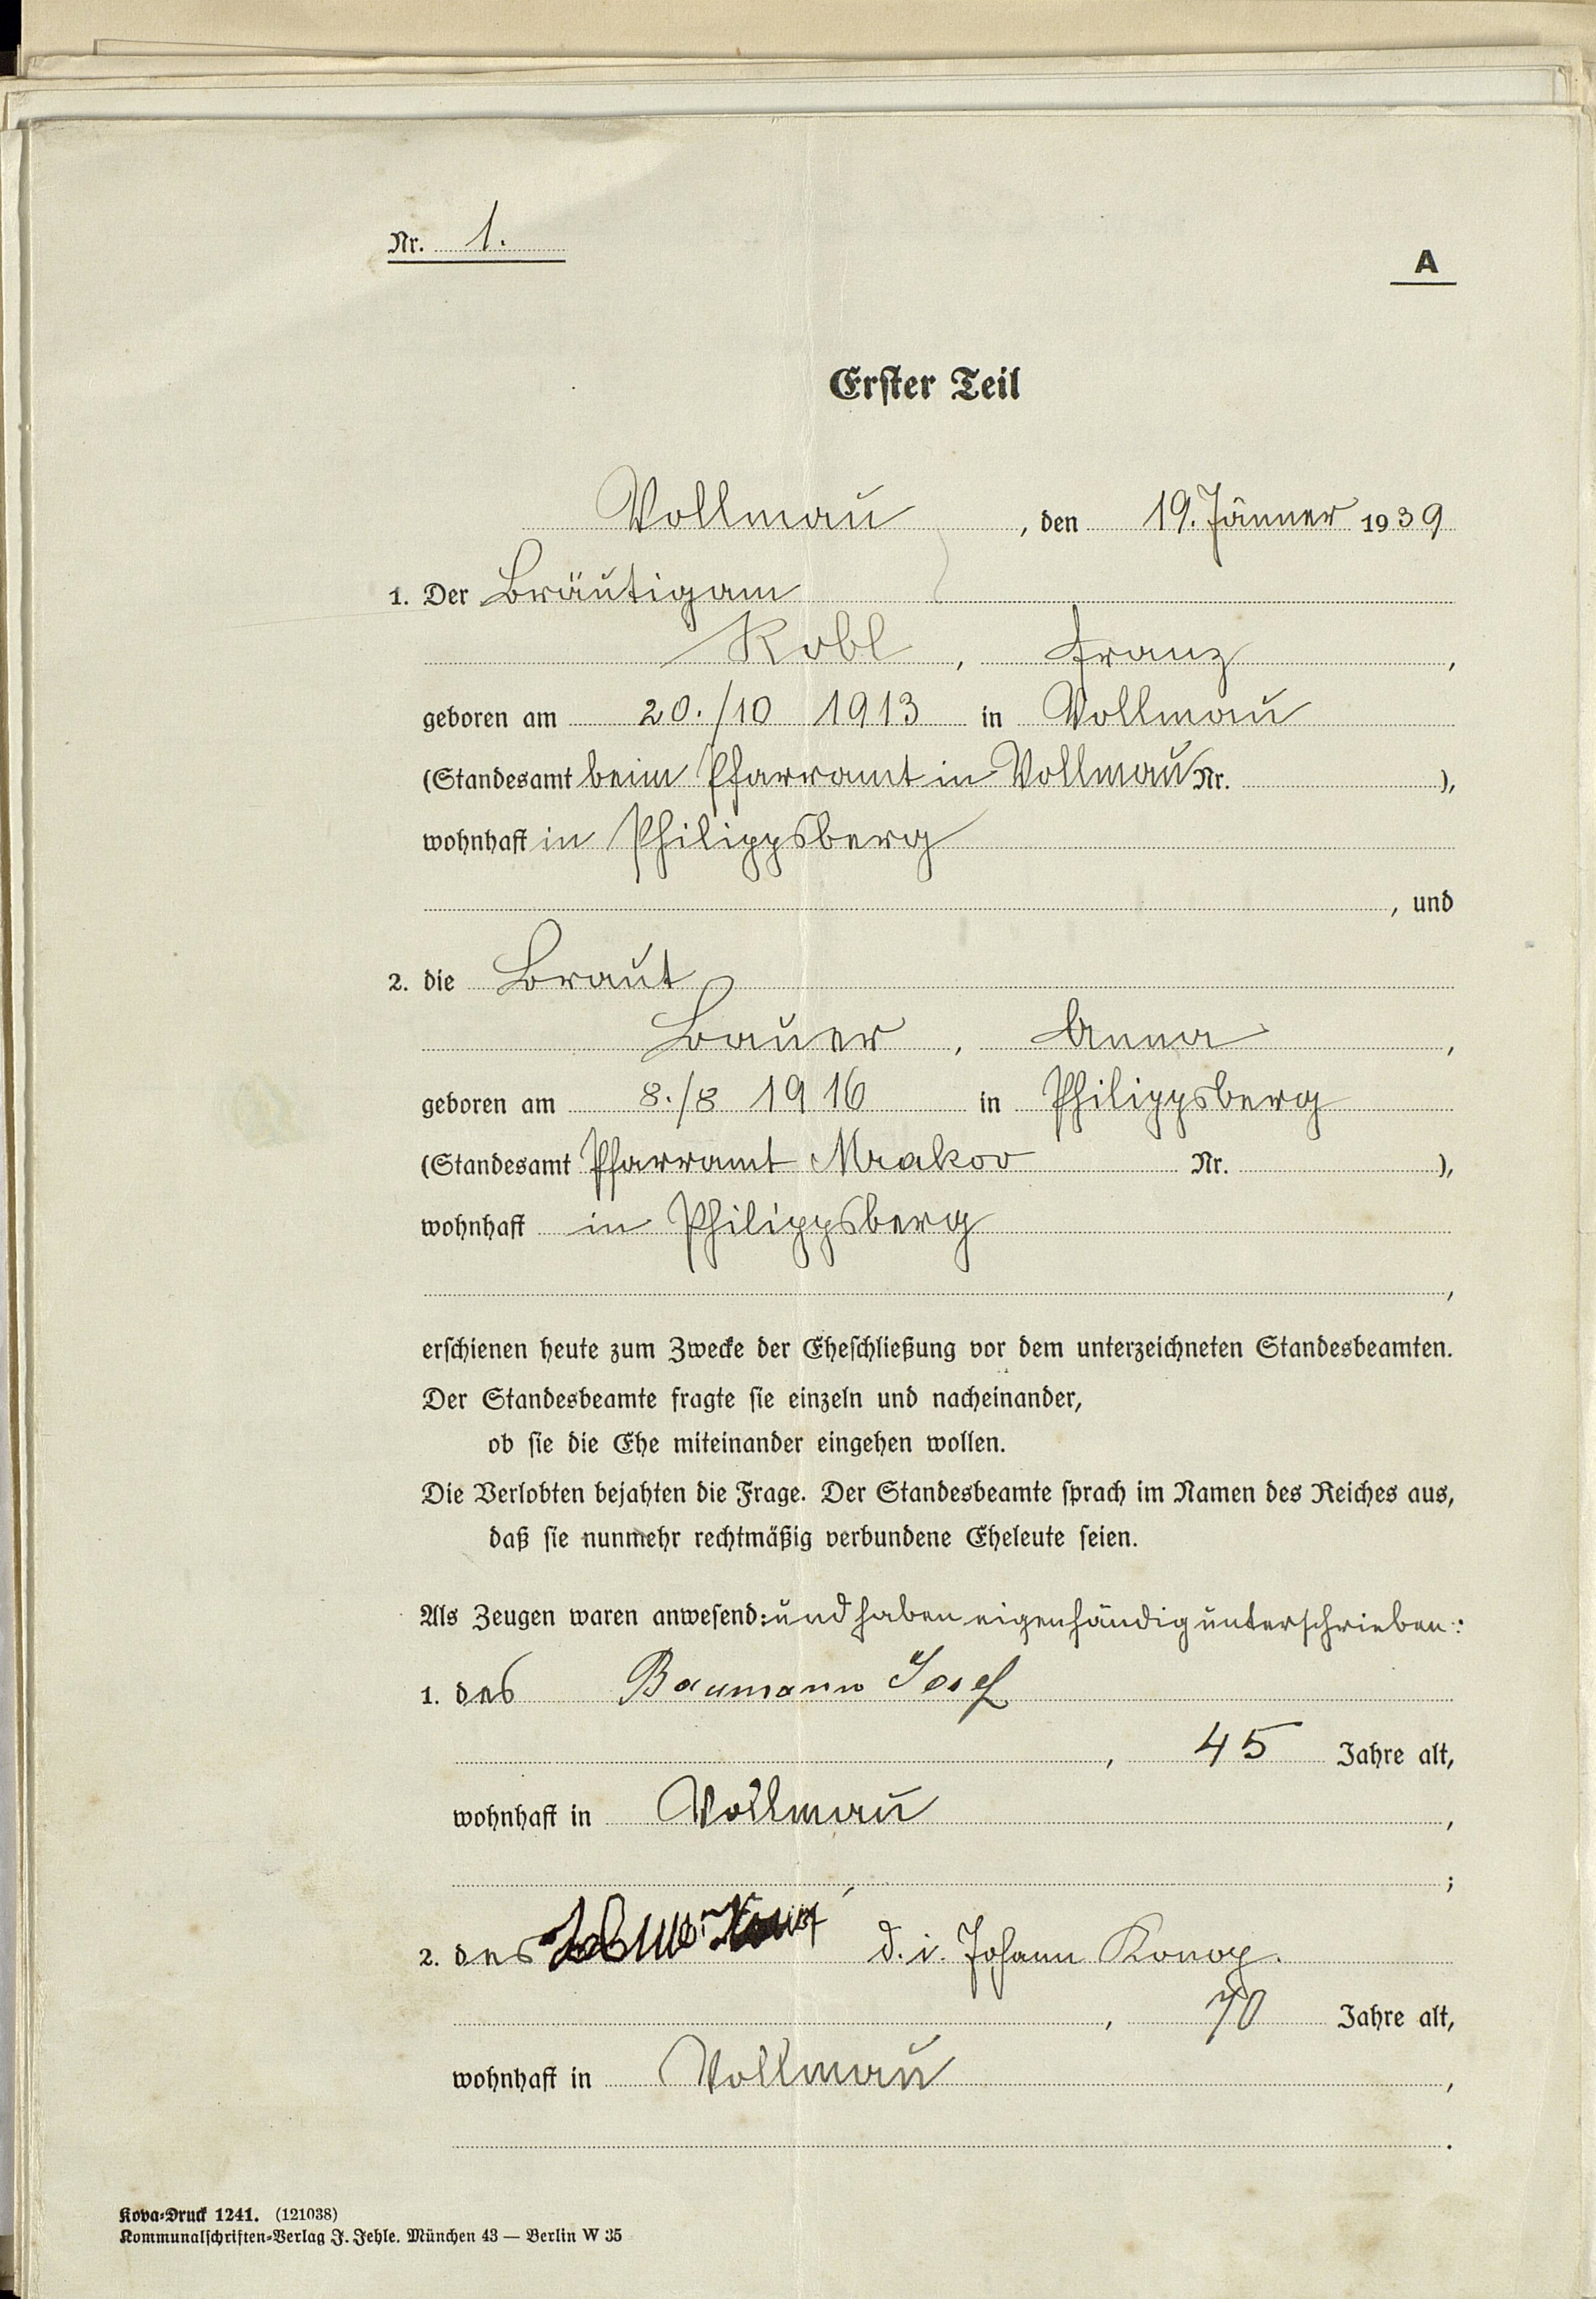 Nr. 1.
A
Erster Teil
Vollmau, den 19. Jänner 1939
1. Der Bräutigam
Kobl, Franz,
geboren am 20./10 1913 in Vollmau
(Standesamt beim Pfarramt in Vollmau Nr. ),
wohnhaft in Philippsberg
, und
2. die Braut
Bauer, Anna,
geboren am 8./8 1916 in Philippsberg
(Standesamt Pfarramt Mrakov Nr. ),
wohnhaft in Philippsberg
,
erschienen heute zum Zwecke der Eheschließung vor dem unterzeichneten Standesbeamten.
Der Standesbeamte fragte sie einzeln und nacheinander,
ob sie die Ehe miteinander eingehen wollen.
Die Verlobten bejahten die Frage. Der Standesbeamte sprach im Namen des Reiches aus,
daß sie nunmehr rechtmäßig verbundene Eheleute seien.
Als Zeugen waren anwesend: und haben eigenhändig unterschrieben:
1. des Baumann Josef
, 45 Jahre alt,
wohnhaft in Vollmau,
;
2. des d. i. Johann Konop.
, 70 Jahre alt,
wohnhaft in Vollmau,
.
Kova-Druck 1241. (121038)
Kommunalschriften-Verlag J. Jehle. München 43 — Berlin W 35